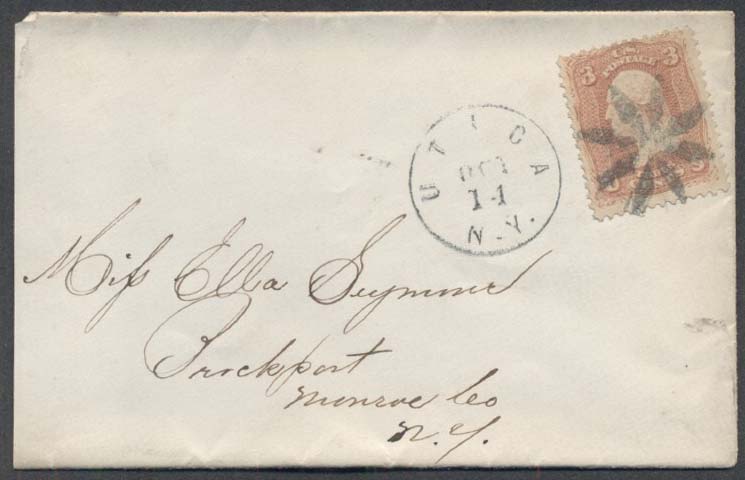 U.S.
POSTAGE
3 3
UTICA
OCT
14
N.Y.
Miss Ella Seymour
Brockport
Monroe Co
N.Y.